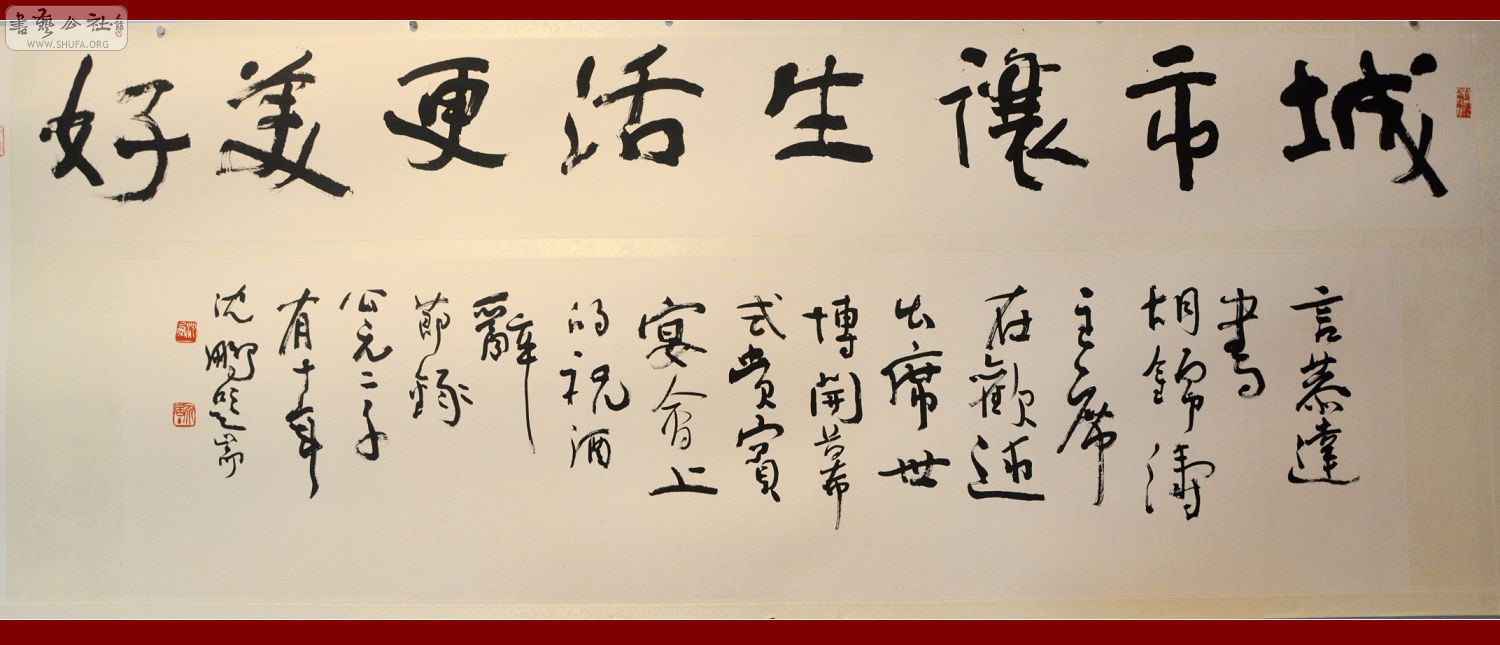 書藝公社
WWW.SHUFA.ORG
城市讓生活更美好
言恭達
書
胡錦濤
主席
在歡迎
出席世
博開幕
式貴賓
宴會上
的祝酒
辭
節錄
公元二千
有十年
沈鵬題耑